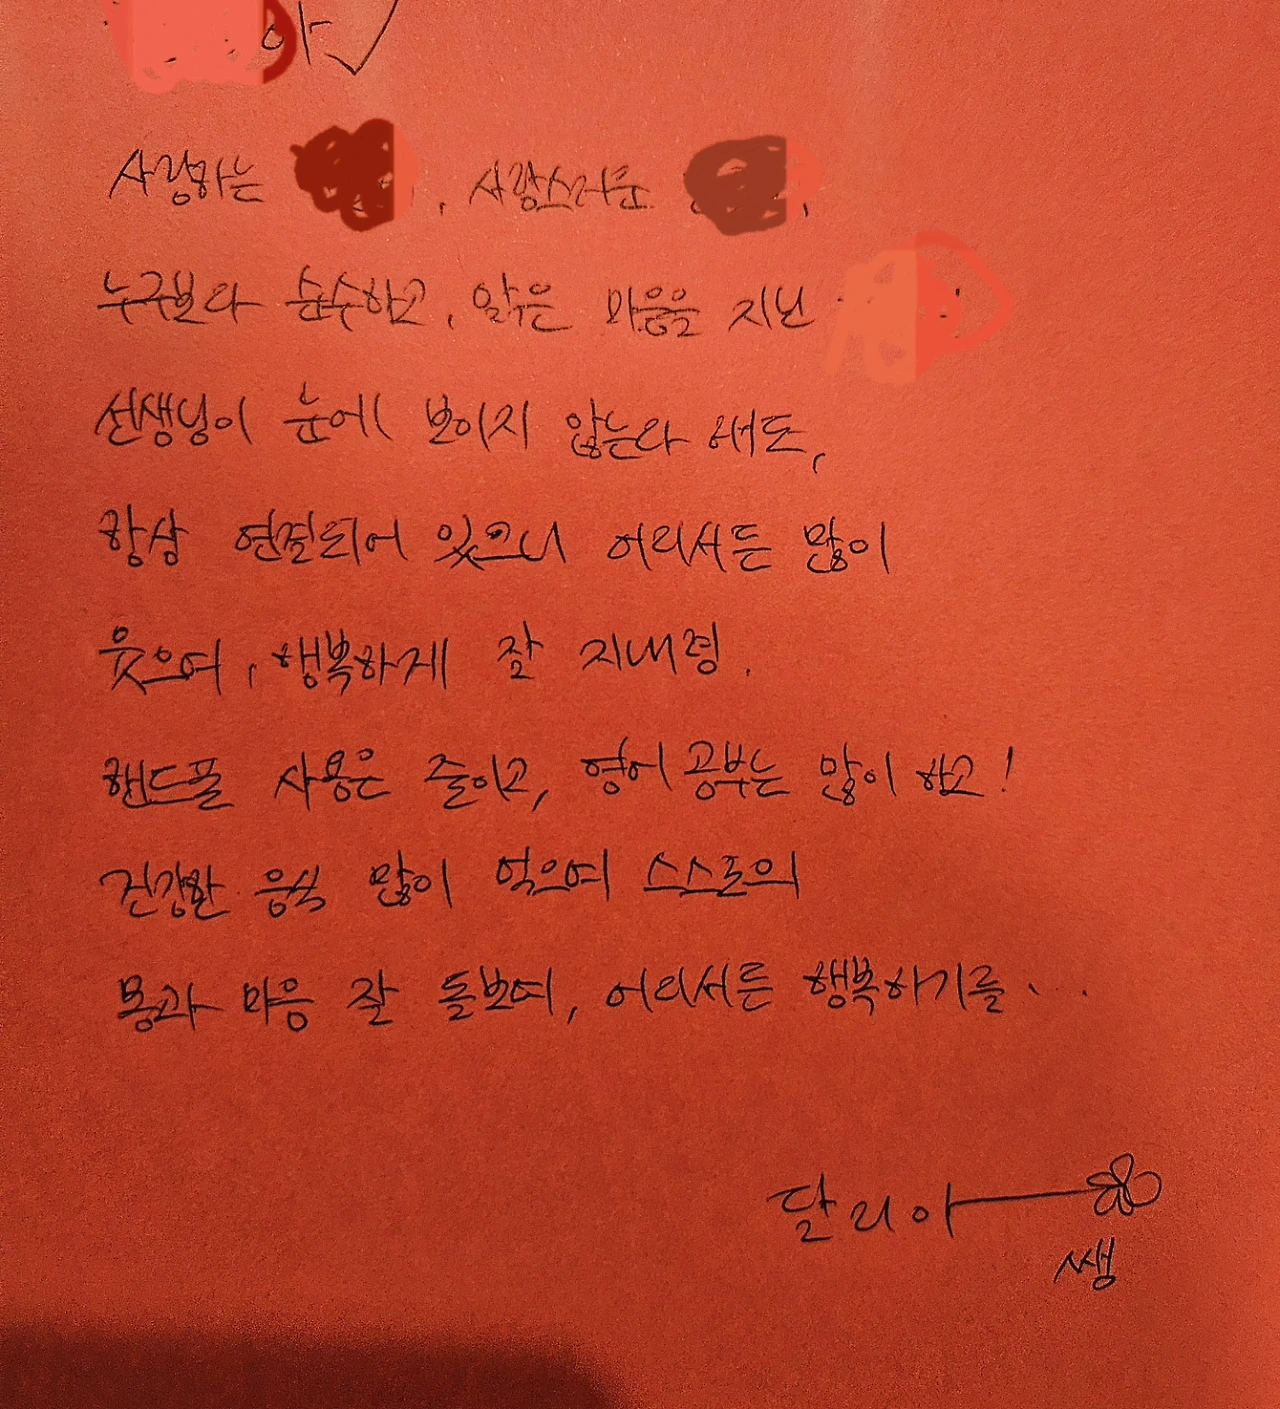 아
사랑하는 , 사랑스러운 ,
누구보다 순수하고, 맑은 마음을 지닌
선생님이 눈에 보이지 않는다 해도,
항상 연결되어 있으니 어디서든 많이
웃으며, 행복하게 잘 지내렴.
핸드폰 사용은 줄이고, 영어 공부는 많이 하고!
건강한 음식 많이 먹으며 스스로의
몸과 마음 잘 돌보며, 어디서든 행복하기를...
달리아
쌤